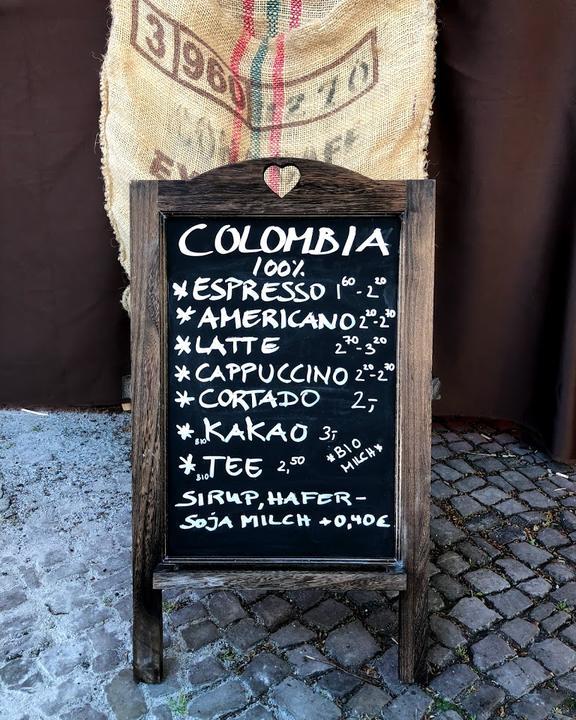 3 960 70
COLOMBIA
100%
* ESPRESSO 1⁶⁰-2²⁰
* AMERICANO 2²⁰-2⁷⁰
* LATTE 2⁷⁰-3²⁰
* CAPPUCCINO 2²⁰-2⁷⁰
* CORTADO 2,-
* BIO KAKAO 3,-
* BIO TEE 2,50
*BIO
MILCH*
SIRUP, HAFER-
SOJA MILCH +0,40€